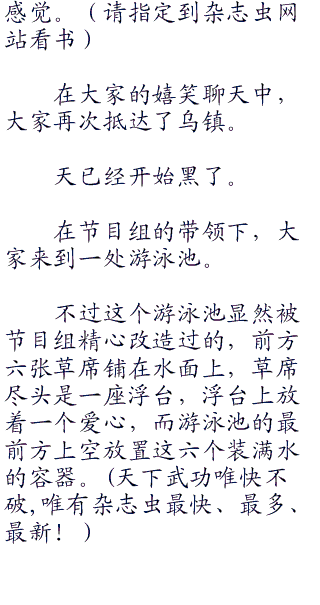 感觉。（请指定到杂志虫网
站看书）
在大家的嬉笑聊天中，
大家再次抵达了乌镇。
天已经开始黑了。
在节目组的带领下，大
家来到一处游泳池。
不过这个游泳池显然被
节目组精心改造过的，前方
六张草席铺在水面上，草席
尽头是一座浮台，浮台上放
着一个爱心，而游泳池的最
前方上空放置这六个装满水
的容器。(天下武功唯快不
破,唯有杂志虫最快、最多、
最新！)